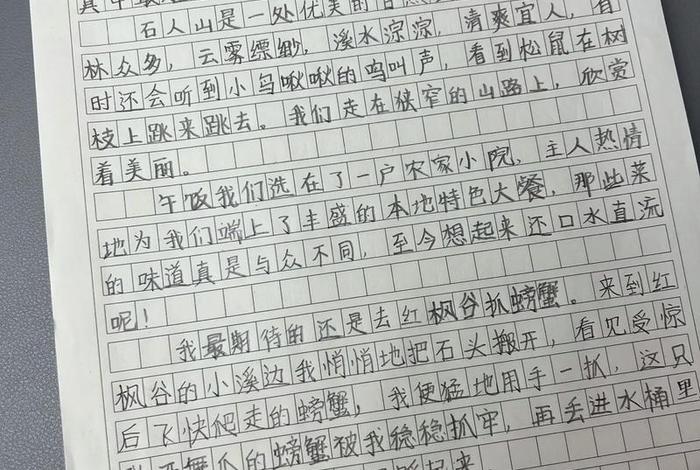 石人山是一处优美的自然
林众多，云雾缥缈，溪水淙淙，清爽宜人，有
时还会听到小鸟啾啾的鸣叫声，看到松鼠在树
枝上跳来跳去。我们走在狭窄的山路上，欣赏
着美丽。
午饭我们选在了一户农家小院，主人热情
地为我们端上了丰盛的本地特色大餐，那些菜
的味道真是与众不同，至今想起来还口水直流
呢！
我最期待的还是去红枫谷抓螃蟹。来到红
枫谷的小溪边我悄悄地把石头搬开，看见受惊
后飞快爬走的螃蟹，我便猛地用手一抓，这只
舞爪的螃蟹被我稳稳抓牢，再丢进水桶里
起来